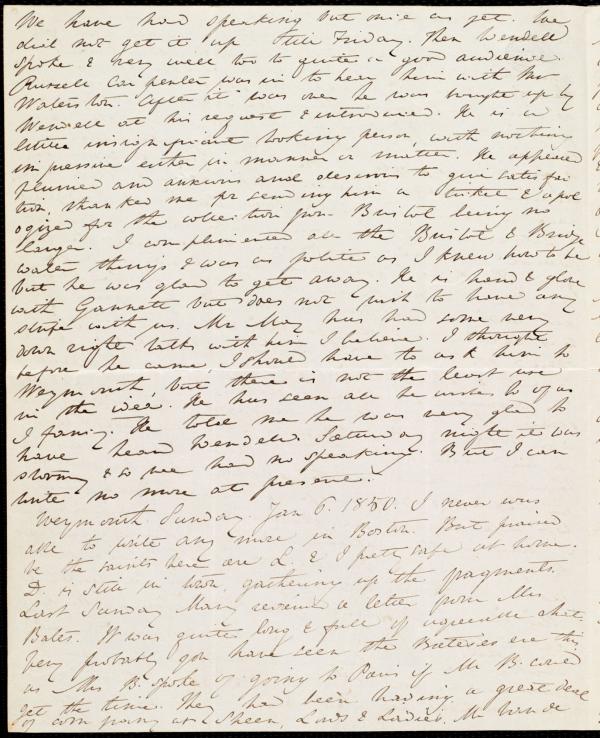 We have had speaking but once as yet. We
did not get it up till Friday. Then Wendell
spoke & very well too to quite a good audience.
Russell Carpenter was in to hear him with Mr
Waterston. After it was over he was brought up by
Wendell at his request & introduced. He is a
little insignificant looking person, with nothing
impressive either in manner or matter. He appeared
flurried and anxious and desirous to give satisfac
tion, thanked me for sending him a ticket & apol
ogized for the collection from Bristol being no
larger. I complimented all the Bristol & Bridge
water things & was as polite as I knew how to be
but he was glad to get away. He is hand & glove
with Gannett but does not wish to have any
strife with us. Mr May has had some very
down right talks with him I believe. I thought
before he came, I should have to ask him to
Weymouth, but there is not the least use
in the idea. He has seen all he wishes to of us
I fancy. He told me he was very glad to
have heard Wendell. Saturday night it was
stormy & so we had no speaking. But I can
write no more at present.
Weymouth Sunday. Jan 6. 1850. I never was
able to write any more in Boston. But praised
be the saints here are L. & I pretty safe at home.
D. is still in town gathering up the fragments.
Last Sunday Mary received a letter from Mrs
Bates. It was quite long & full of agreeable chat.
Very probably you have seen the Bateses ere this
as Mrs B. spoke of going to Paris if Mr B. could
get the time. They had been having a great deal
of company at Sheen, Lords & Ladies, Mr Van de